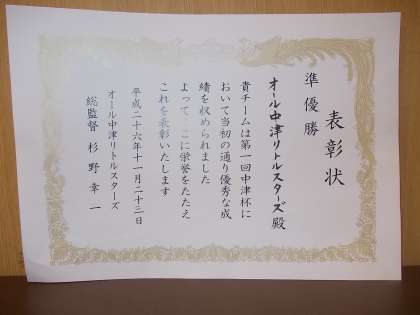 表彰状
準優勝
オール中津リトルスターズ殿
貴チームは第一回中津杯に
おいて当初の通り優秀な成
績を収められました
よってここに栄誉をたたえ
これを表彰いたします
平成二十六年十一月二十三日
オール中津リトルスターズ
総監督 杉野幸一